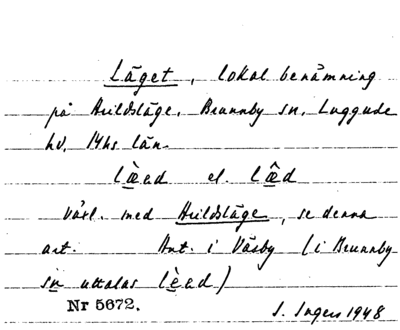 Läget, lokal benämning
på Arildsläge, Brunnby sn, Luggude
hd, Mhs län.
lɛ̀əd el. lɛ̂d
växl. med Arildsläge, se denna
art. Ant. i Väsby (i Brunnby
sn uttalas lèəd)
Nr 5672.
S. Ingers 1948